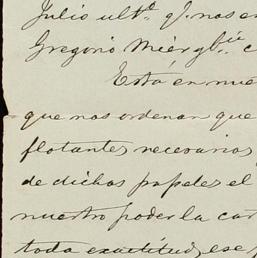 Julio ult.º q. nos en
Gregorio Mier y
Está en nue
que nos ordenan que
flotantes necesarios
de dichos papeles el
nuestro poder la car
toda exactitud, ese